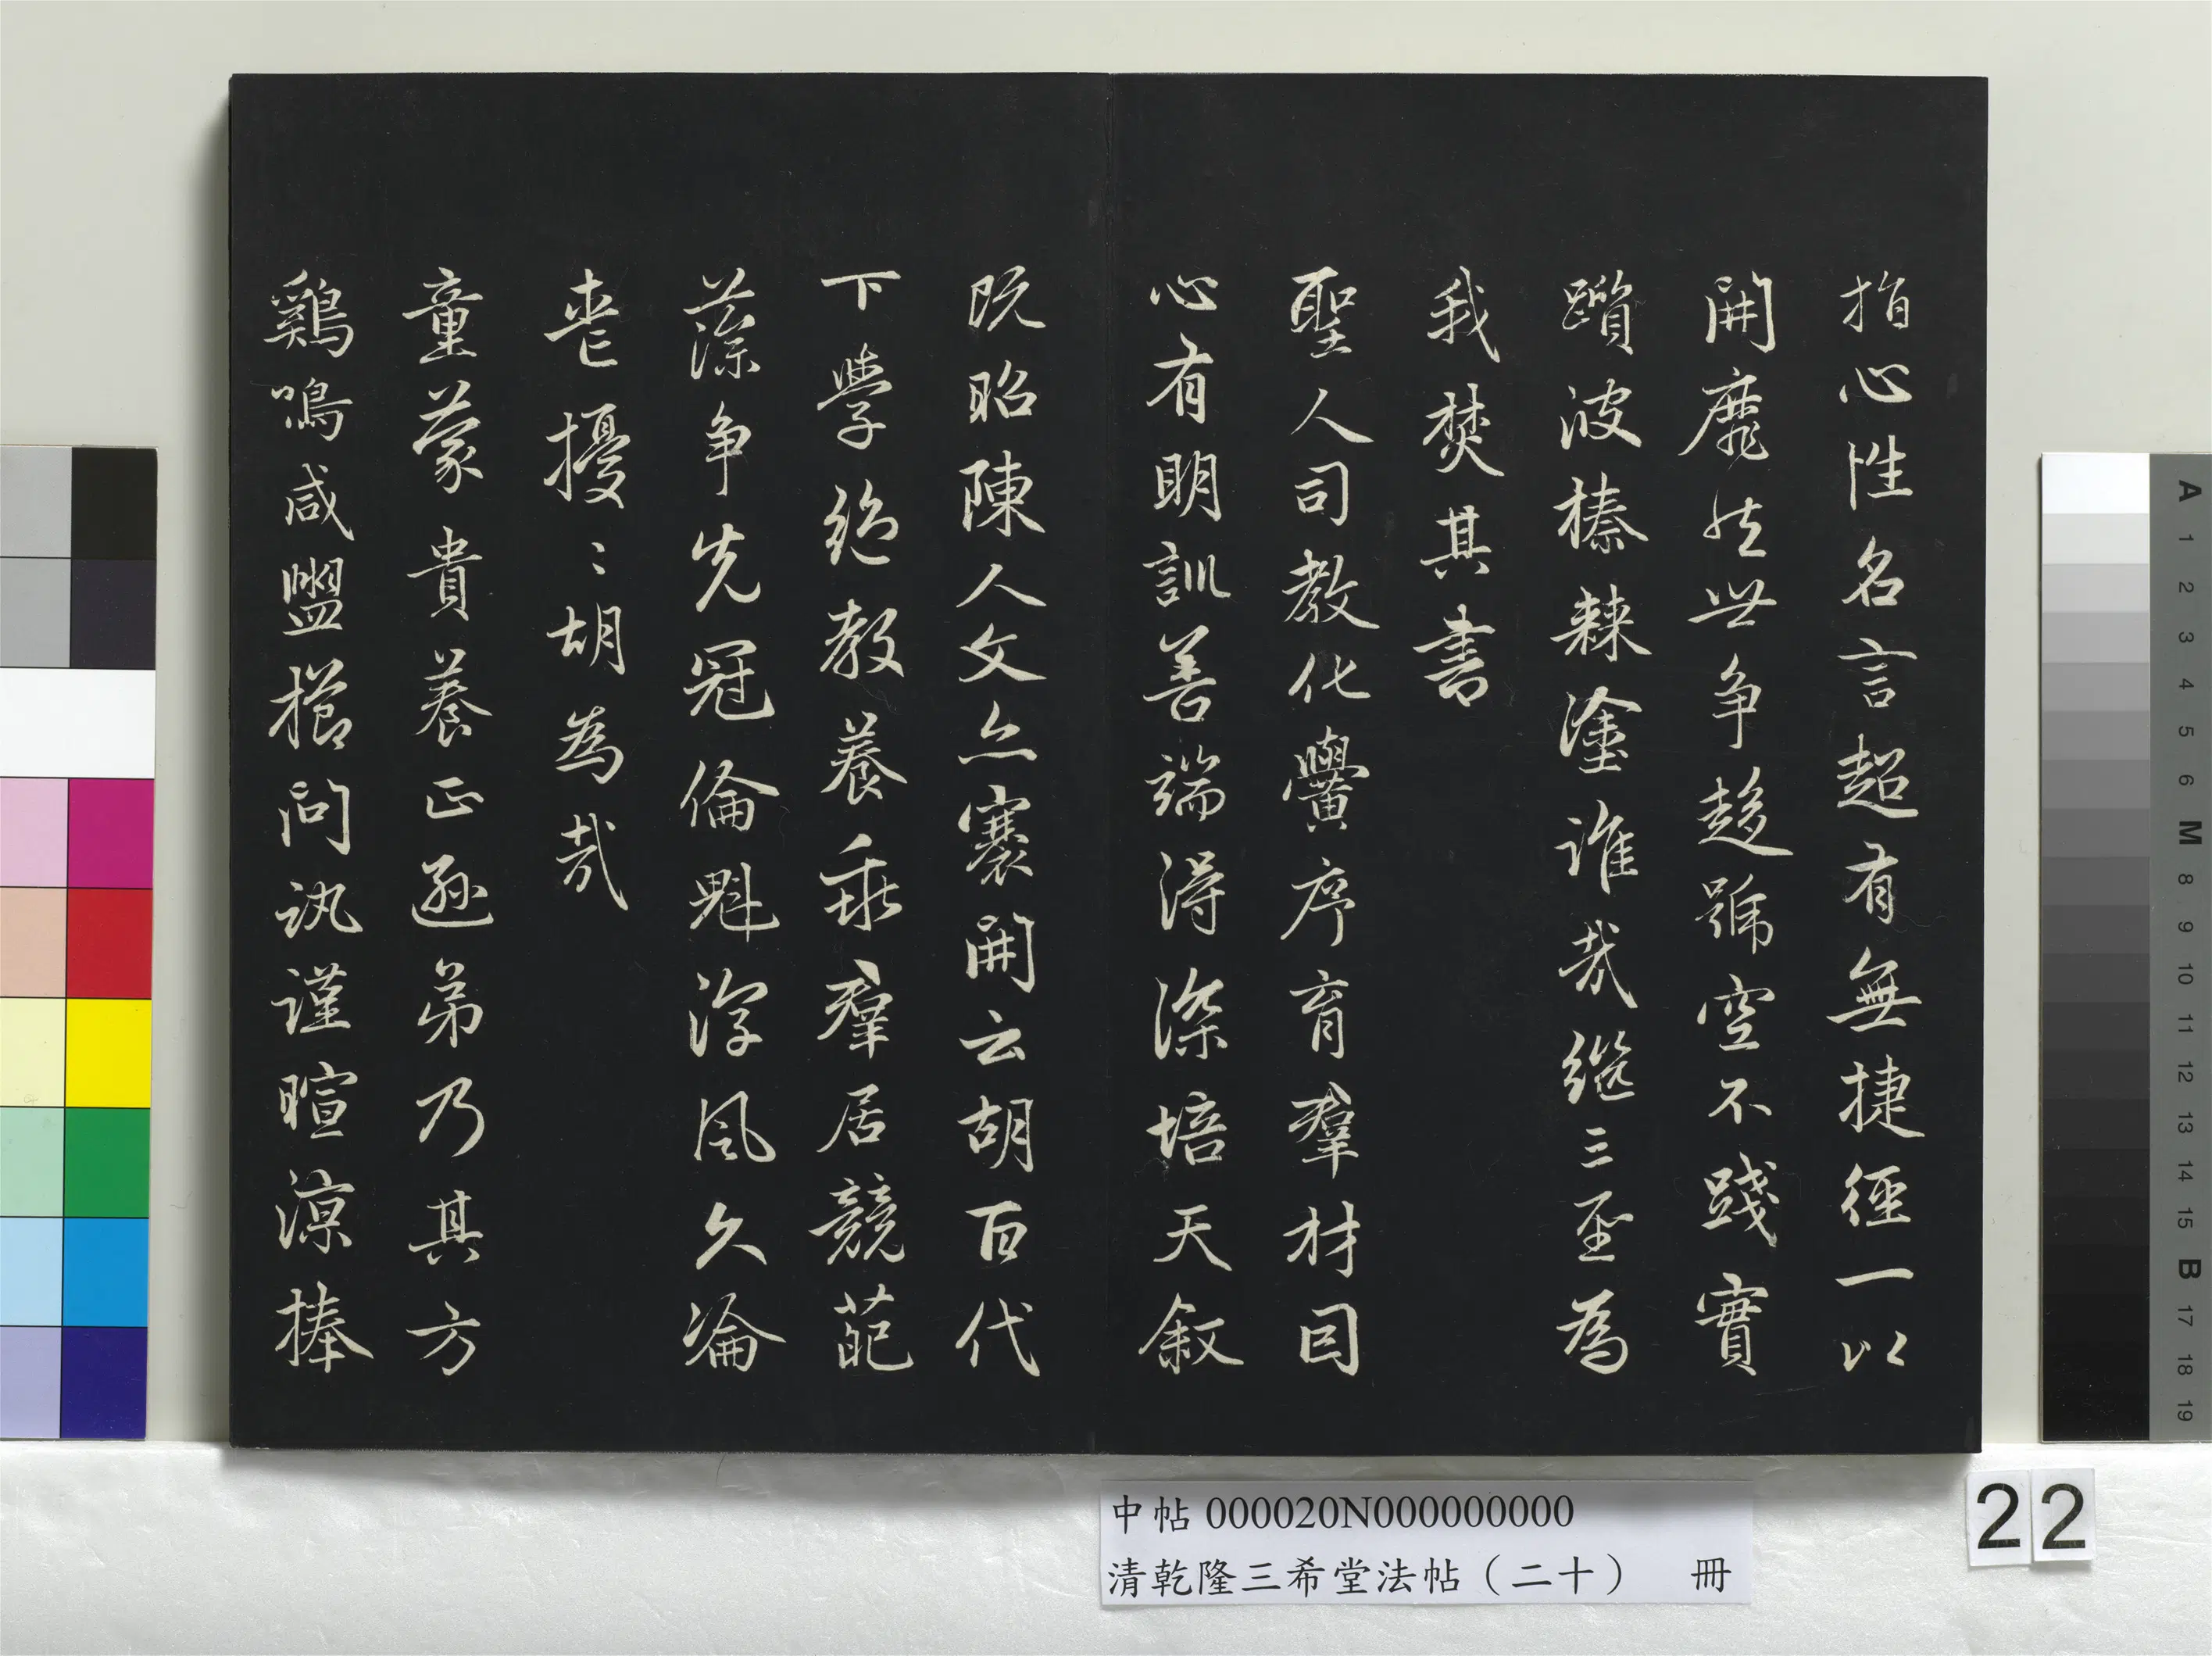 指心性名言超有無捷徑一以
開靡然世爭趨號空不踐實
躓彼榛棘塗誰哉繼三聖為
我焚其書
聖人司教化黌序育羣材因
心有明訓善端得深培天敘
既昭陳人文亦褰開云胡百代
下學絕教養乖羣居競葩
藻爭先冠倫魁淳風久淪
喪擾〻胡為哉
童蒙貴養正遜弟乃其方
鷄鳴咸盥櫛問訊謹暄涼捧
中帖 000020N000000000
清乾隆三希堂法帖（二十） 冊
22
A
1
2
3
4
5
6
M
8
9
10
11
12
13
14
15
B
17
18
19